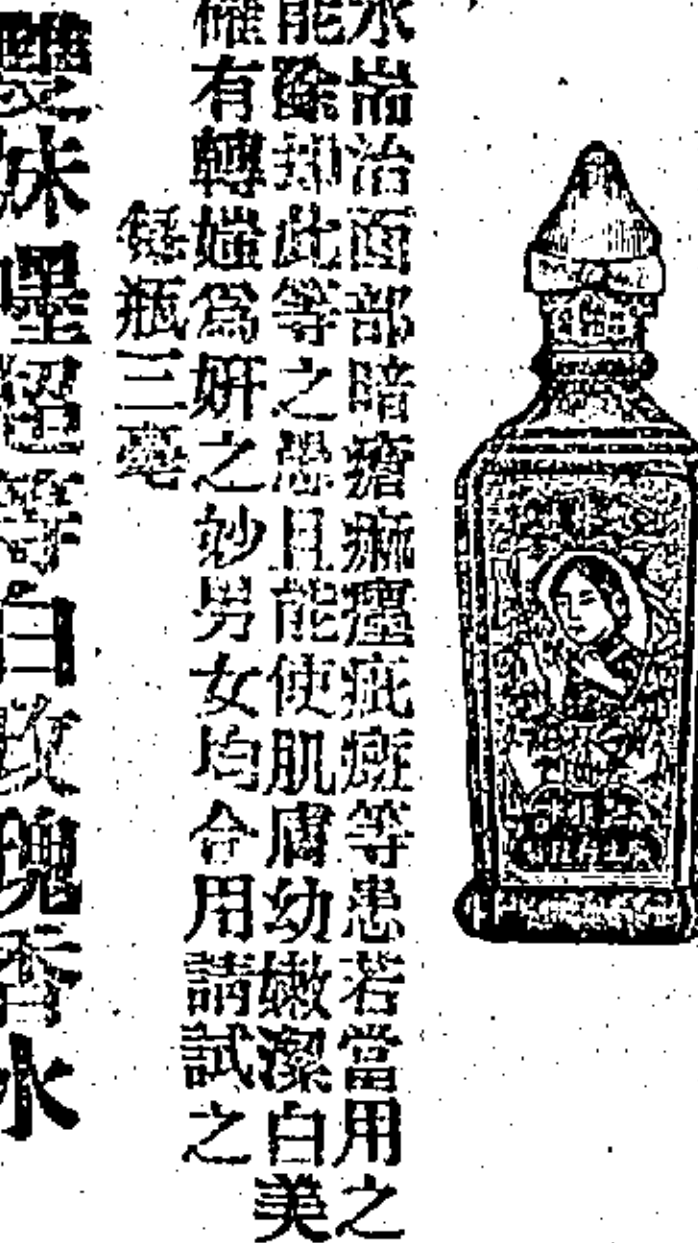 水耑治面部暗瘡痲㾗疵癍等患若當用之
能除却此等之患且能使肌膚幼嫩潔白美
有轉媸為妍之妙男女均合用請試之
瓶三毫
雙妹嚜超等白玫瑰香水